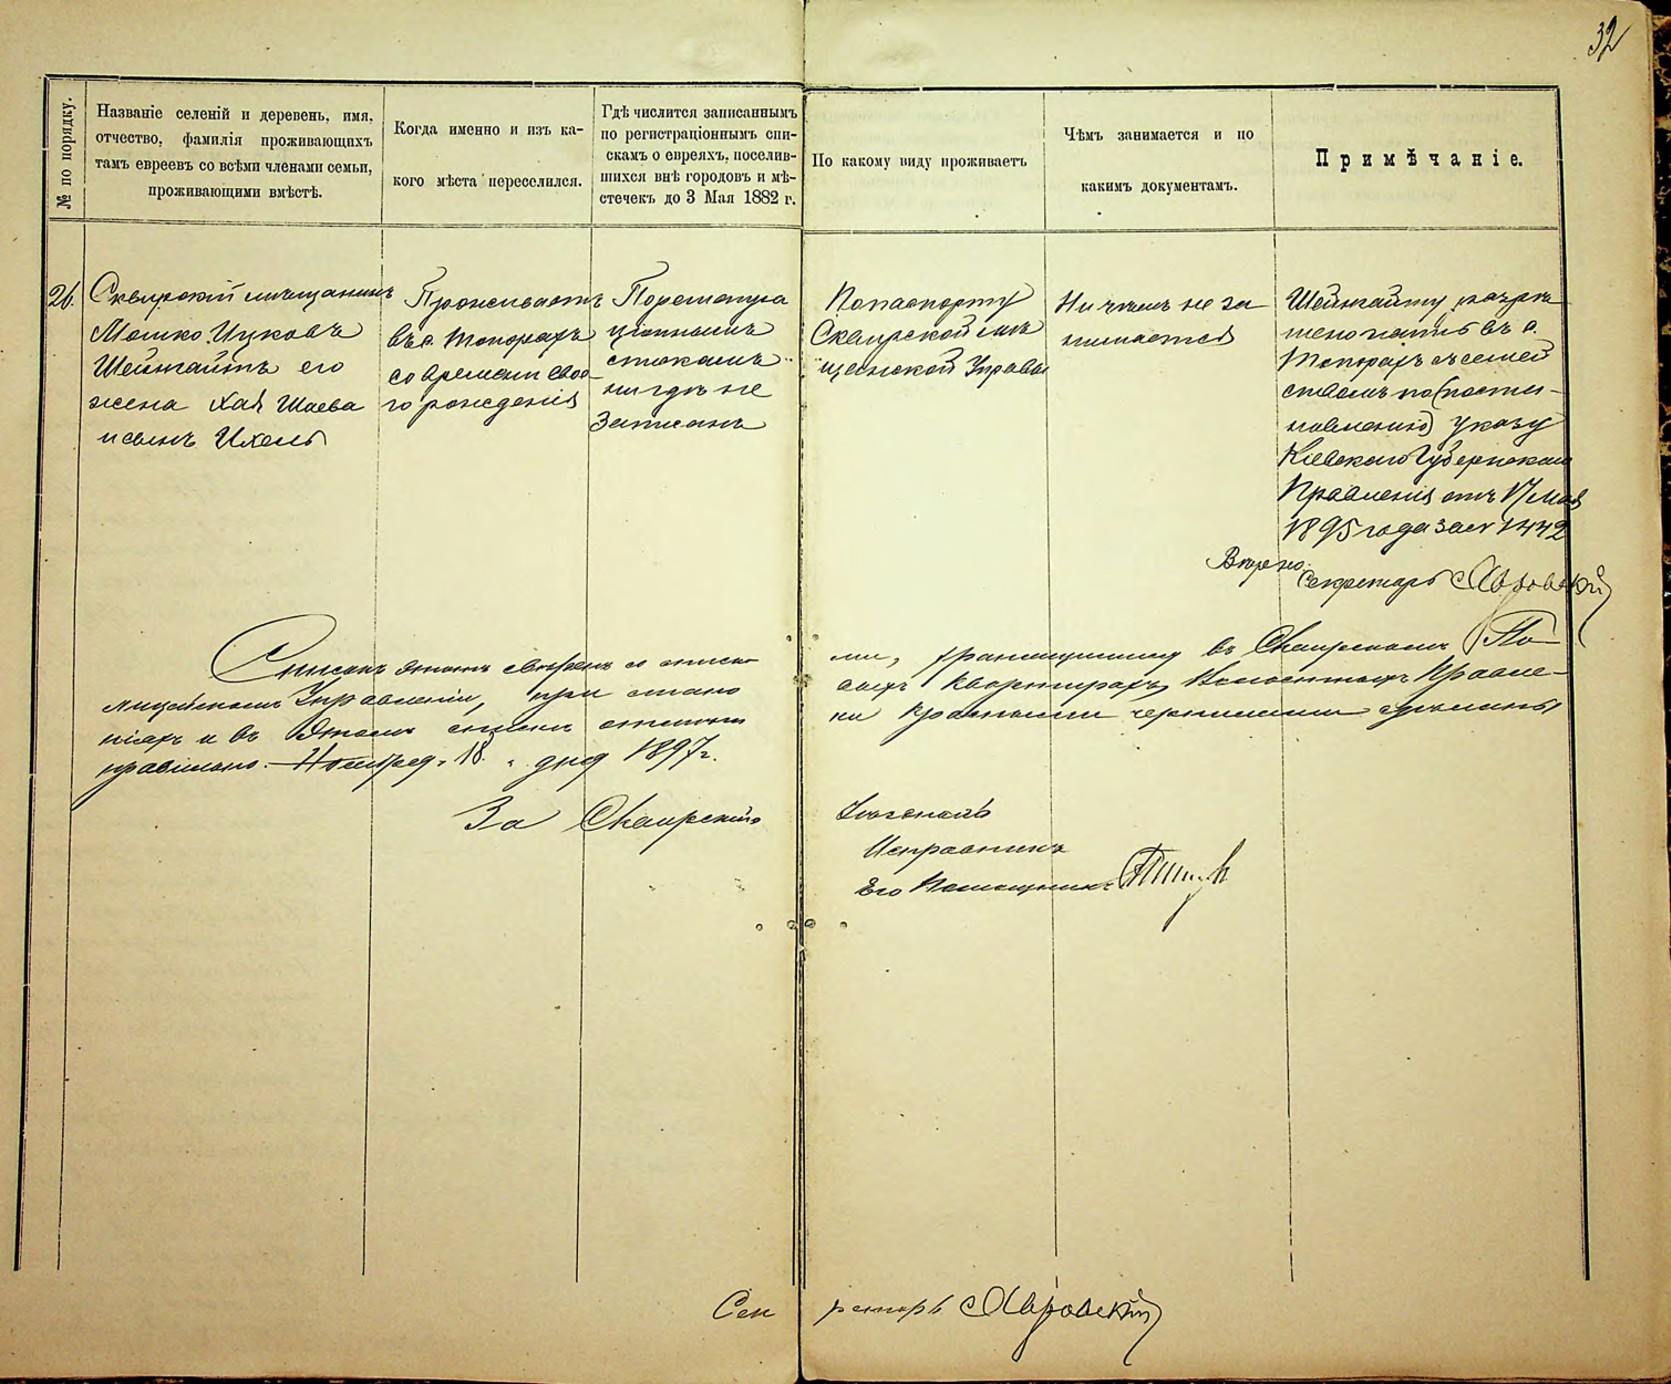 32
№ по порядку.
Названіе селеній и деревень, имя,
отчество, фамилія проживающихъ
тамъ евреевъ со всѣми членами семьи,
проживающими вмѣстѣ.
Когда именно и изъ ка-
кого мѣста переселился.
Гдѣ числится записаннымъ
по регистраціоннымъ спи-
скамъ о евреяхъ, поселив-
шихся внѣ городовъ и мѣ-
стечекъ до 3 Мая 1882 г.
По какому виду проживаетъ
Чѣмъ занимается и по
какимъ документамъ.
Примѣчаніе.
26.
Сквирскій мѣщанинъ
Мошко Ицковъ
Шейнгайтъ его
жена Хая Шаева
и сынъ Ихель
Проживаетъ
въ с. Топорахъ
со времени свое-
го рожденія
По регистра
ціоннымъ
спискамъ
нигдѣ не
записанъ
По паспорту
Сквирской мѣ
щанской Управы
Ничѣмъ не за
нимается
Шейнгайту разрѣ
шено жить въ с.
Топорахъ съ семей
ствомъ по (поста-
новленію) указу
Кіевскаго Губернскаго
Правленія отъ 17 мая
1895 года за № 1442
Вѣрно:
Секретарь
Списокъ этотъ свѣренъ со списка
ми, хранящимися въ Сквирскомъ По
лицейскомъ Управленіи, при стано
выхъ квартирахъ, Волостныхъ Правле-
ніяхъ и въ этомъ спискѣ отмѣт
ки красными чернилами сдѣланы
правильно. Ноября "18" дня 1897 г.
За Сквирскаго
Уѣзднаго
Исправника
Его Помощникъ
Секретарь